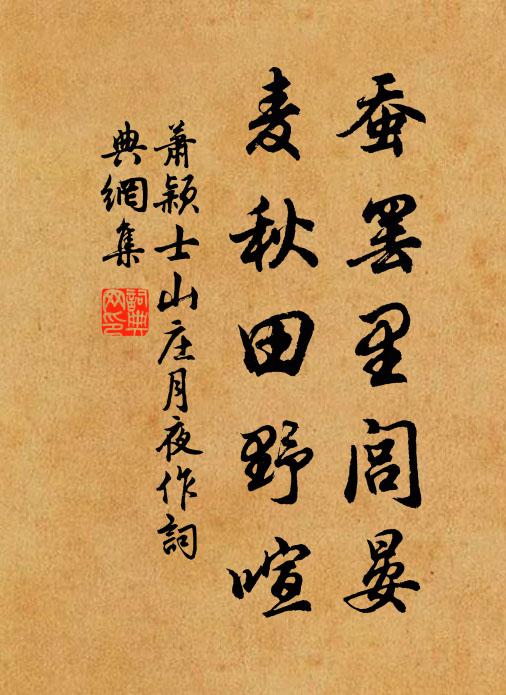 蚕罢里闾晏
麦秋田野喧
萧颖士山庄月夜作词
典網集
詞典
网印